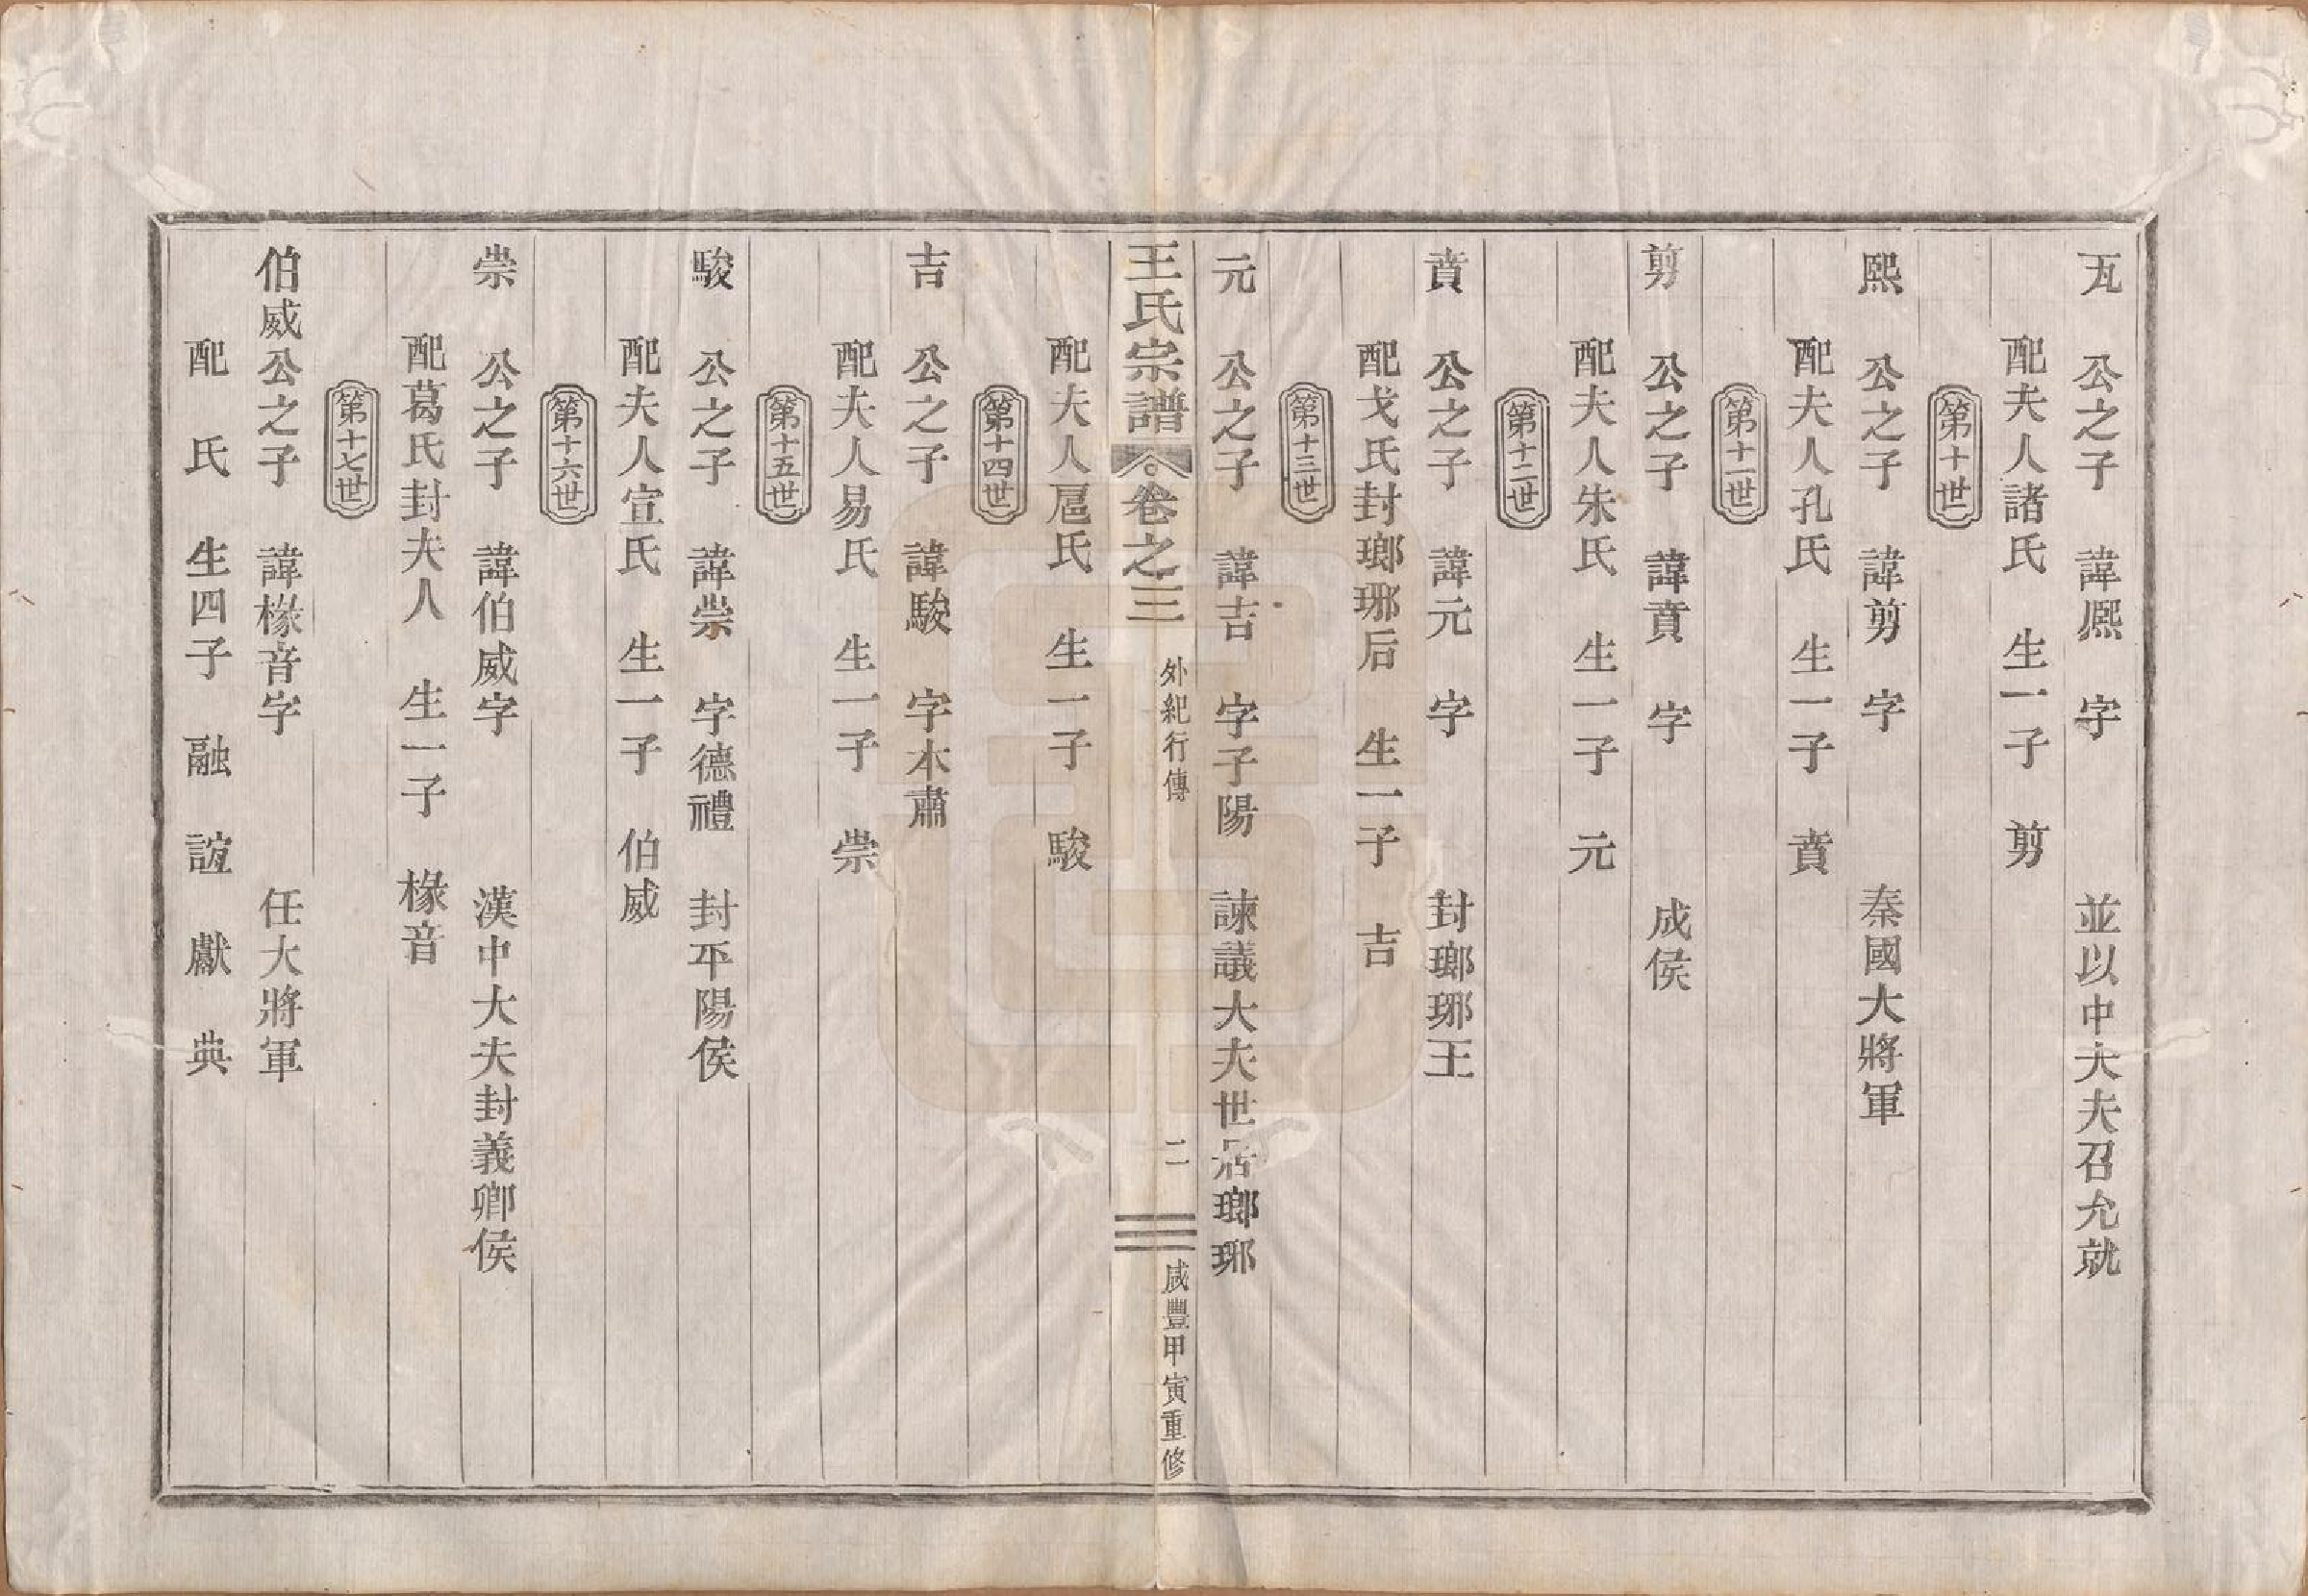 瓦 公之子 諱熈 字 並以中大夫召允就
配夫人諸氏 生一子 剪
第十世
熈 公之子 諱剪 字 秦國大將軍
配夫人孔氏 生一子 賁
第十一世
剪 公之子 諱賁 字 成侯
配夫人朱氏 生一子 元
第十二世
賁 公之子 諱元 字 封瑯琊王
配戈氏封瑯琊后 生一子 吉
第十三世
元 公之子 諱吉 字子陽 諫議大夫世居瑯琊
王氏宗譜 卷之三 外紀行傳 二 咸豐甲寅重修
配夫人扈氏 生一子 駿
第十四世
吉 公之子 諱駿 字本肅
配夫人易氏 生一子 崇
第十五世
駿 公之子 諱崇 字德禮 封平陽侯
配夫人宣氏 生一子 伯威
第十六世
崇 公之子 諱伯威字 漢中大夫封義鄉侯
配葛氏封夫人 生一子 椽音
第十七世
伯威公之子 諱椽音字 任大將軍
配 氏 生四子 融 誼 獻 典